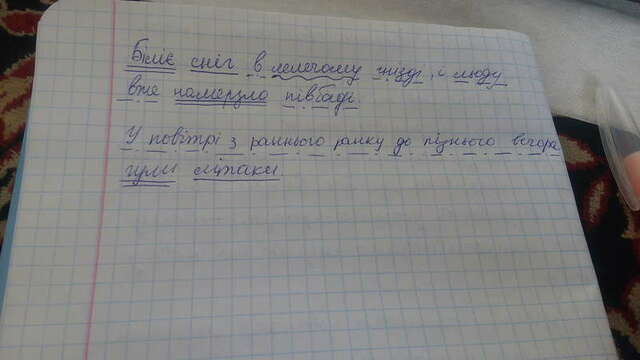 Біліє сніг в лелечому гнізді, і люду
вже намерзло півбаді.
У повітрі з раннього ранку до пізнього вечора
гули літаки.